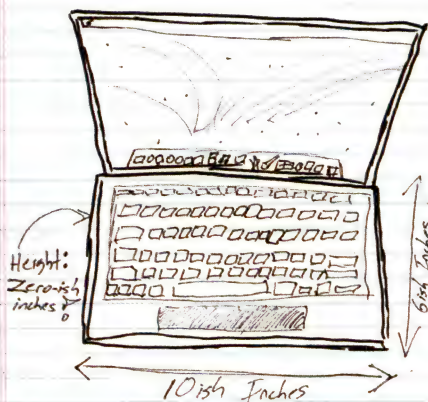 Height:
Zero-ish
inches!
6ish Inches
10ish Inches